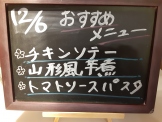 12/6 おすすめ
メニュー
☆チキンソテー
☆山形風芋煮
☆トマトソースパスタ